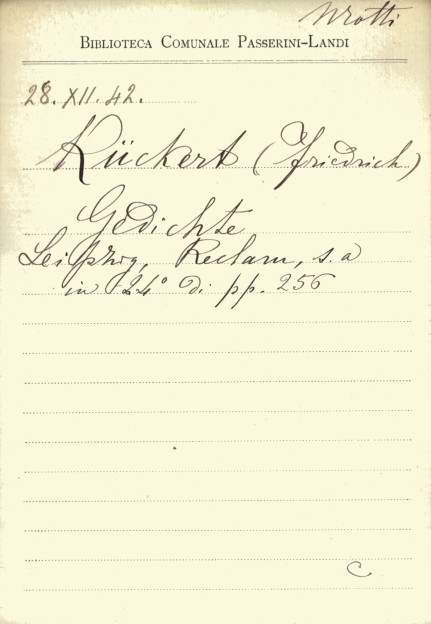 Nrotti
BIBLIOTECA COMUNALE PASSERINI-LANDI
28.XII.42.
Rückert (Friedrich)
Gedichte
Leipzig, Reclam, s. a
in 24° di pp. 256
C